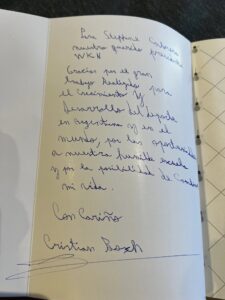 Para Stephane Cabrera
nuestro querido presidente
WKN
Gracias por el gran
trabajo realizado para
el crecimiento y
desarrollo del deporte
en Argentina y en el
mundo, por las oportunidades
a nuestra humilde escuela
y por la posibilidad de cambiar
mi vida.
Con Cariño
Cristian Bosch